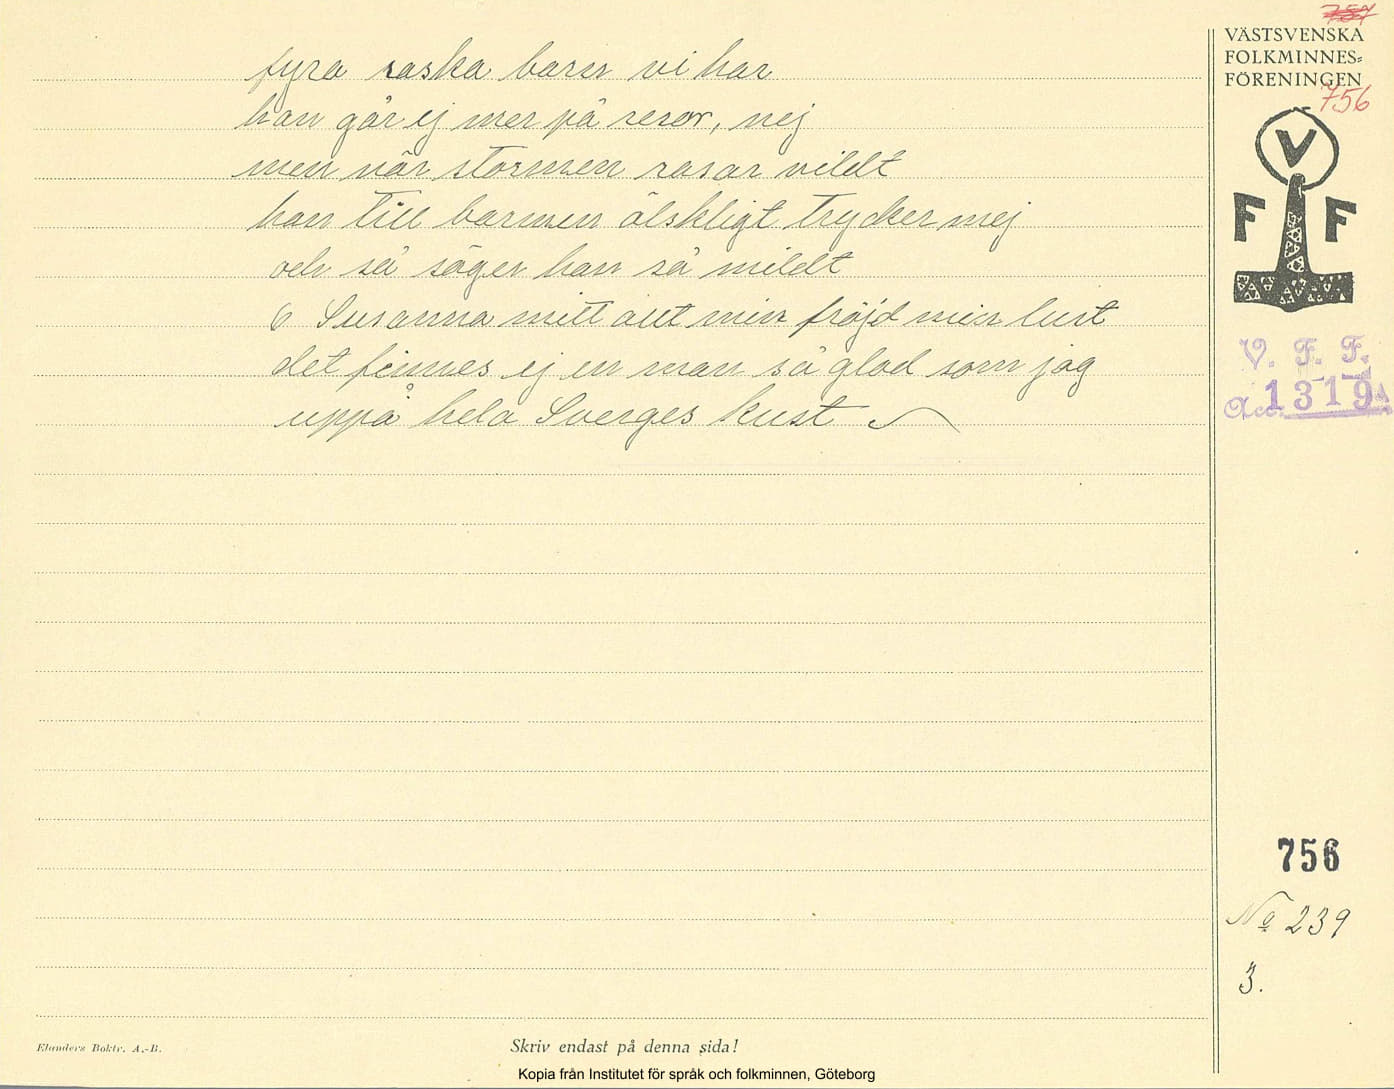 fyra raska barn vi har
han går ej mer på resor, nej
men när stormen rasar vildt
han till barmen älskligt trycker mej
och så säger han så mildt
o Susanna mitt allt min fröjd min lust
det finnes ej en man så glad som jag
uppå hela Sverges kust
757
VÄSTSVENSKA
FOLKMINNES-
FÖRENINGEN
756
V
F F
V. F. F.
Acc. 1319
756
No 239
3.
Elanders Boktr. A.-B.
Skriv endast på denna sida!
Kopia från Institutet för språk och folkminnen, Göteborg